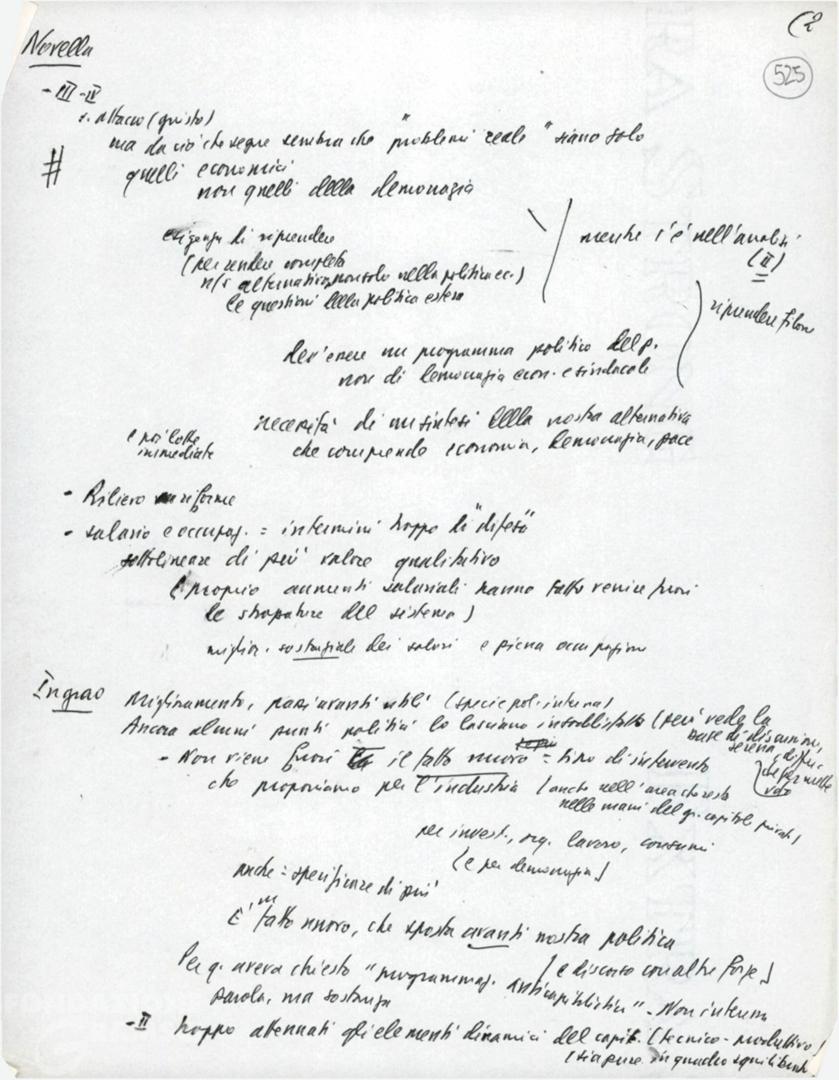 (2
525
Novella
- III-IV
1. attacco (giusto)
ma da ciò che segue sembra che "problemi reali" siano solo
# quelli economici
non quelli della democrazia
esigenza di riprendere
(per rendere completa
alternativa, non solo nella politica ec.)
le questioni della politica estera
mentre c'è nell'analisi
(II)
riprendere filone
dev'essere un programma politico del p.
non di democrazia econ. e sindacale
necessità di una sintesi della nostra alternativa
che comprenda economia, democrazia, pace
e poi lotte
immediate
- Rilievo riforme
- salario e occupaz. = in termini troppo di "difesa"
sottolineare di più valore qualitativo
(proprio aumenti salariali hanno fatto venire fuori
le strozzature del sistema)
miglior. sostanziale dei salari e piena occupazione
Ingrao
Miglioramento, passi avanti utili (specie pol. interna)
Ancora alcuni punti politici lo lasciano insoddisfatto (però vede la
base di discussione,
serena,
- Non viene fuori il fatto nuovo = tipo di intervento
che proponiamo per l'industria (anche nell'area che resta
nelle mani del gr. capitale privato)
per invest., org. lavoro, consumi
(e per democrazia)
anche = specificare di più
E' un fatto nuovo, che sposta avanti nostra politica
(e discorso con altre forze)
Per q. aveva chiesto "programmaz. anticapitalistica". Non interessa
parola, ma sostanza
- II troppo attenuati gli elementi dinamici del capit. (tecnico-produttivo)
(sia pure in quadro squilibrato)